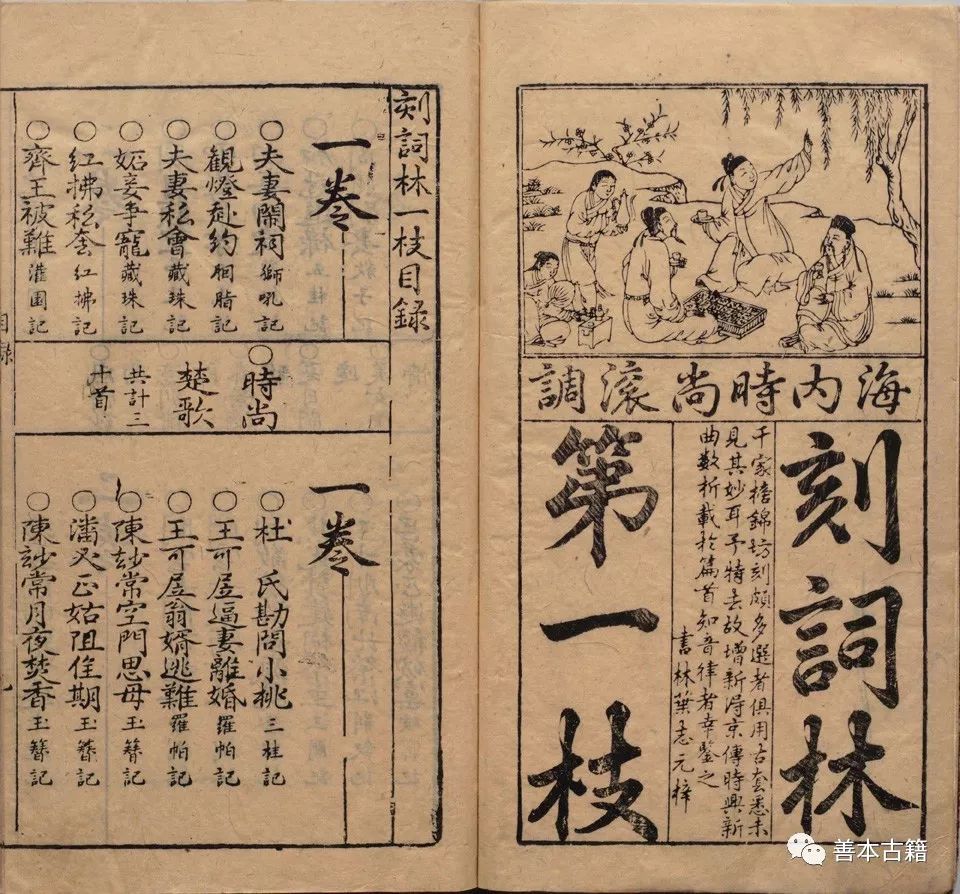 海內時尚滾調
刻詞林
千家擔錦坊刻頗多選者俱用古套悉未
見其妙耳予特去故增新得京傳時興新
曲數折載於篇首知音律者幸鑒之
書林葉志元梓
第一枝
刻詞林一枝目錄
一卷
○夫妻閙祠獅吼記
○觀燈赴約胭脂記
○夫妻私會藏珠記
○妬妾爭寵藏珠記
○紅拂私奔紅拂記
○齊王被難灌園記
○時尚
楚歌
共計三
十首
一卷
○杜氏勘問小桃三桂記
○王可居逼妻離婚羅帕記
○王可居翁婿逃難羅帕記
○陳玅常空門思母玉簪記
○潘必正姑阻佳期玉簪記
○陳玅常月夜焚香玉簪記
目錄
善本古籍